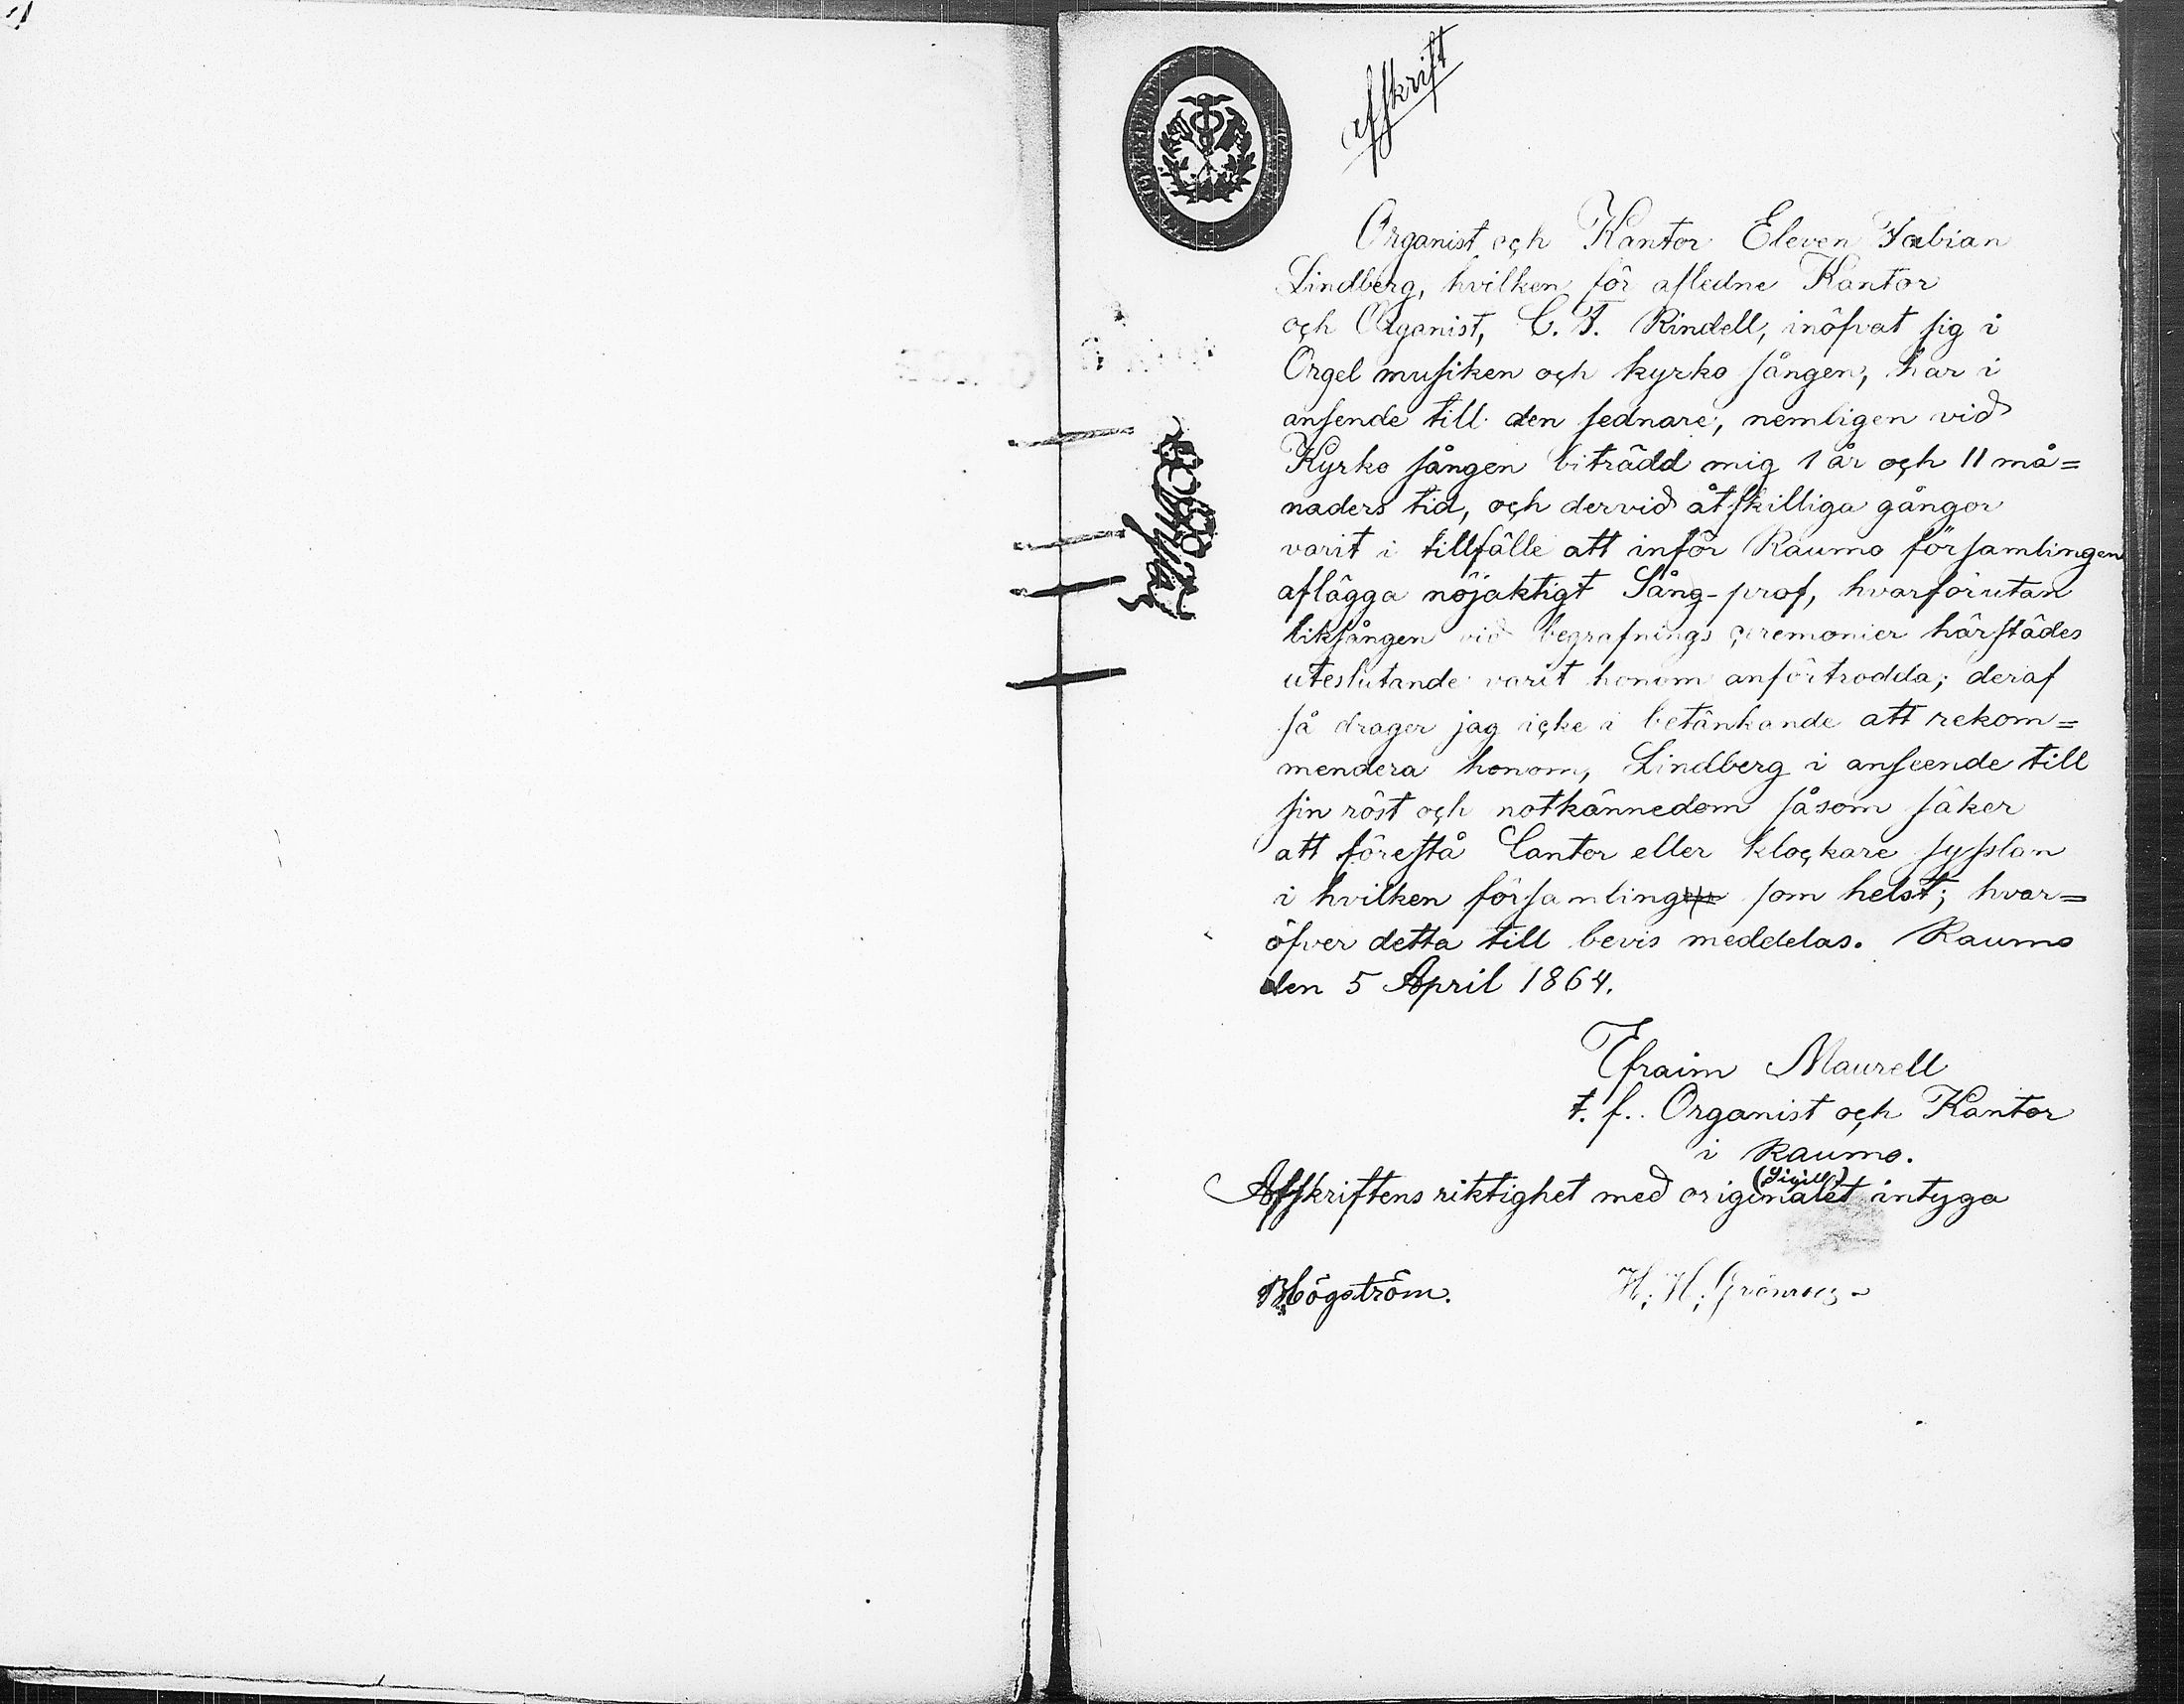 Afskrift
Organist och Kantor Eleven Fabian
Lindberg, hvilken för afledne Kantor
och Organist, C. F. Rindell, inöfvat sig i
Orgel musiken och kyrko sången, har i
ansende till den sednare, nemligen vid
Kyrko sången biträdd mig 1 år och 11 må=
naders tid, och dervid åtskilliga gångor
varit i tillfälle att inför Raumo församlingen
aflägga nöjaktigt Sång-prof, hvarförutan
liksången vid begrafnings ceremonier härstädes
uteslutande varit honom anförtrodda; deraf
så drager jag icke i betänkande att rekom=
mendera honom, Lindberg i anseende till
sin röst och notkännedom såsom säker
att förestå Cantor eller klockare sysslan
i hvilken församling som helst; hvar=
öfver detta till bevis meddelas. Raumo
den 5 April 1864.
Efraim Maurell
t. f. Organist och Kantor
i Raumo.
(Sigill)
Afskriftens riktighet med originalet intyga
Högström.
H. H. Grönroos